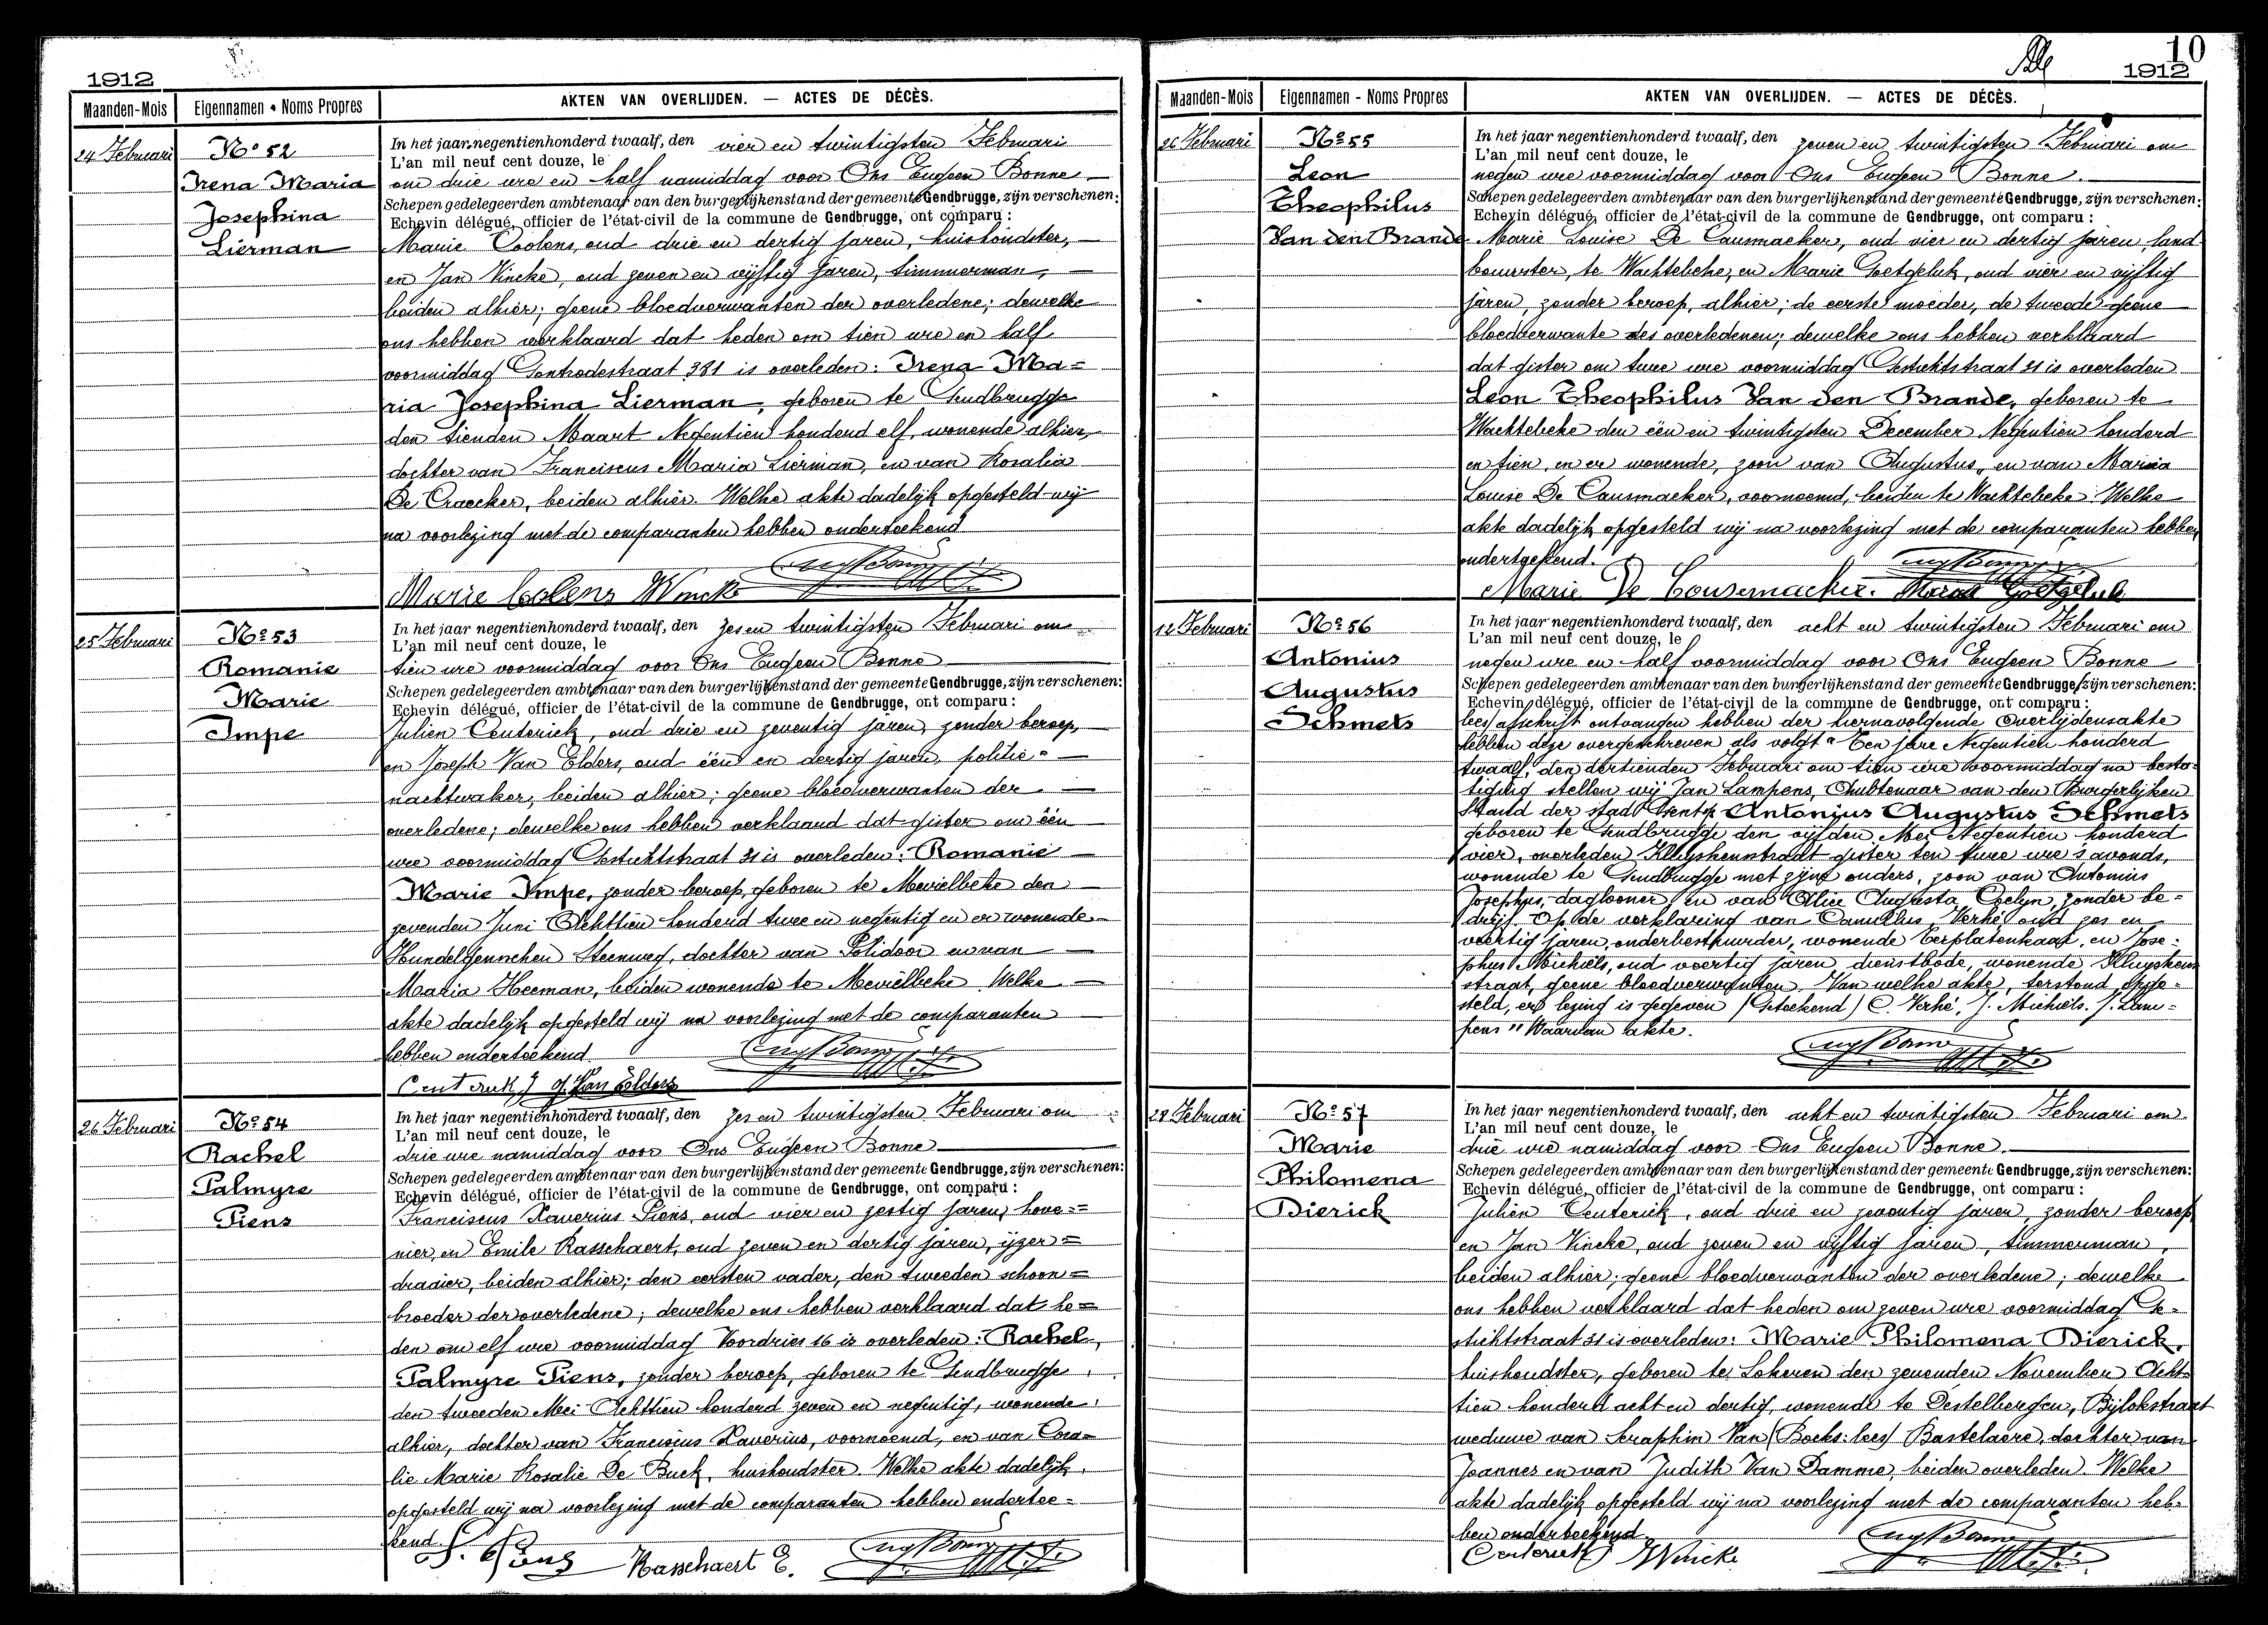 1912
Maanden-Mois Eigennamen • Noms Propres AKTEN VAN OVERLIJDEN. — ACTES DE DÉCÈS.
24 Februari
No 52
Irena Maria
Josephina
Lierman
In het jaar negentienhonderd twaalf, den vier en twintigsten Februari
L'an mil neuf cent douze, le
om drie ure en half namiddag voor Ons Eugeen Bonne
Schepen gedelegeerden ambtenaar van den burgerlijkenstand der gemeente Gendbrugge, zijn verschenen:
Echevin délégué, officier de l'état-civil de la commune de Gendbrugge, ont comparu :
Marie Coolens, oud drie en dertig jaren, huishoudster,
en Jan Vincke, oud zeven en vijftig jaren, timmerman,
beiden alhier; geene bloedverwanten der overledene; dewelke
ons hebben verklaard dat heden om tien ure en half
voormiddag Gontrodestraat 381 is overleden: Irena Ma=
ria Josephina Lierman, geboren te Gendbrugge
den tienden Maart Negentien honderd elf, wonende alhier,
dochter van Franciscus Maria Lierman, en van Rosalia
De Craecker, beiden alhier. Welke akte dadelijk opgesteld wij
na voorlezing met de comparanten hebben onderteekend
Marie Colens JVincke
25 Februari
No 53
Romanie
Marie
Impe
In het jaar negentienhonderd twaalf, den zes en twintigsten Februari om
L'an mil neuf cent douze, le
tien ure voormiddag voor Ons Eugeen Bonne
Schepen gedelegeerden ambtenaar van den burgerlijkenstand der gemeente Gendbrugge, zijn verschenen:
Echevin délégué, officier de l'état-civil de la commune de Gendbrugge, ont comparu :
Julien Centerick, oud drie en zeventig jaren, zonder beroep,
en Joseph Van Elders, oud één en dertig jaren, politie=
nachtwaker, beiden alhier; geene bloedverwanten der
overledene; dewelke ons hebben verklaard dat gister om één
ure voormiddag Gestichtstraat 21 is overleden: Romanie
Marie Impe, zonder beroep, geboren te Meirelbeke den
zevenden Juni Achttien honderd twee en negentig en er wonende
Hundelgemschen Steenweg, dochter van Polidoor en van
Maria Heeman, beiden wonende te Meirelbeke. Welke
akte dadelijk opgesteld wij na voorlezing met de comparanten
hebben onderteekend
Centerick J. Van Elders
26 Februari
No 54
Rachel
Palmyre
Piens
In het jaar negentienhonderd twaalf, den zes en twintigsten Februari om
L'an mil neuf cent douze, le
drie ure namiddag voor Ons Eugeen Bonne
Schepen gedelegeerden ambtenaar van den burgerlijkenstand der gemeente Gendbrugge, zijn verschenen:
Echevin délégué, officier de l'état-civil de la commune de Gendbrugge, ont comparu :
Franciscus Xaverius Piens, oud vier en zestig jaren, hove=
nier, en Emile Rasschaert, oud zeven en dertig jaren, ijzer=
draaier, beiden alhier; den eersten vader, den tweeden schoon=
broeder der overledene; dewelke ons hebben verklaard dat he=
den om elf ure voormiddag Voordries 16 is overleden: Rachel,
Palmyre Piens, zonder beroep, geboren te Gendbrugge
den tweeden Mei Achttien honderd zeven en negentig, wonende
alhier, dochter van Franciscus Xaverius, voornoemd, en van Cora=
lie Marie Rosalie De Buck, huishoudster. Welke akte dadelijk
opgesteld wij na voorlezing met de comparanten hebben ondertee=
kend.
Piens Rasschaert E.
10
1912
Maanden-Mois Eigennamen - Noms Propres AKTEN VAN OVERLIJDEN. — ACTES DE DÉCÈS.
26 Februari
No 55
Leon
Theophilus
Van den Brande
In het jaar negentienhonderd twaalf, den zeven en twintigsten Februari om
L'an mil neuf cent douze, le
negen ure voormiddag voor Ons Eugeen Bonne.
Schepen gedelegeerden ambtenaar van den burgerlijkenstand der gemeente Gendbrugge, zijn verschenen:
Echevin délégué, officier de l'état-civil de la commune de Gendbrugge, ont comparu :
Marie Louise De Causmaeker, oud vier en dertig jaren, land
bouwster, te Wachtebeke, en Marie Goetgeluk, oud vier en vijftig
jaren, zonder beroep, alhier; de eerste moeder, de tweede geene
bloedverwante des overledenen; dewelke ons hebben verklaard
dat gister om twee ure voormiddag Gestichtstraat 21 is overleden
Leon Theophilus Van den Brande, geboren te
Wachtebeke den één en twintigsten December Negentien honderd
en tien, en er wonende, zoon van Augustus, en van Maria
Louise De Causmaeker, voornoemd, beiden te Wachtebeke. Welke
akte dadelijk opgesteld wij na voorlezing met de comparanten hebben
onderteekend.
Marie De Cousemaecker. Marie Goetgeluk
12 Februari
No 56
Antonius
Augustus
Schmets
In het jaar negentienhonderd twaalf, den acht en twintigsten Februari om
L'an mil neuf cent douze, le
negen ure en half voormiddag voor Ons Eugeen Bonne
Schepen gedelegeerden ambtenaar van den burgerlijkenstand der gemeente Gendbrugge, zijn verschenen:
Echevin délégué, officier de l'état-civil de la commune de Gendbrugge, ont comparu :
lees afschrift ontvangen hebben der hiernavolgende Overlijdensakte
hebben deze overgeschreven als volgt "Ten jare Negentien honderd
twaalf, den dertienden Februari om tien ure voormiddag na besta-
tiging stellen wij Jan Lampens, Ambtenaar van den Burgerlijken
Stand der stad Gent, Antonius Augustus Schmets
geboren te Gendbrugge den vijfden Mei Negentien honderd
vier, overleden Kluyskensstraat gister ten twee ure 's avonds,
wonende te Gendbrugge met zijne ouders, zoon van Antonius
Josephus, daglooner, en van Alice Augusta Coelyn, zonder be=
drijf. Op de verklaring van Camillus Verhé, oud zes en
veertig jaren, onderbestuurder, wonende Eerplatenkaai, en Jose=
phus Michiels, oud veertig jaren dienstbode, wonende Kluyskens
straat, geene bloedverwanten. Van welke akte, terstond opge=
steld, er lezing is gegeven (Geteekend) C. Verhé, J. Michiels. J. Lam=
pens" Waarvan akte.
28 Februari
No 57
Marie
Philomena
Dierick
In het jaar negentienhonderd twaalf, den acht en twintigsten Februari om
L'an mil neuf cent douze, le
drie ure namiddag voor Ons Eugeen Bonne.
Schepen gedelegeerden ambtenaar van den burgerlijkenstand der gemeente Gendbrugge, zijn verschenen:
Echevin délégué, officier de l'état-civil de la commune de Gendbrugge, ont comparu :
Julien Centerick, oud drie en zeventig jaren, zonder beroep
en Jan Vincke, oud zeven en vijftig jaren, timmerman,
beiden alhier; geene bloedverwanten der overledene; dewelke
ons hebben verklaard dat heden om zeven ure voormiddag Ge=
stichtstraat 21 is overleden: Marie Philomena Dierick,
huishoudster, geboren te Lokeren den zevenden November Acht=
tien honderd acht en dertig, wonende te Destelbergen, Bijlokstraat
weduwe van Seraphin Van (Boeks: lees) Bastelaere, dochter van
Joannes en van Judith Van Damme, beiden overleden. Welke
akte dadelijk opgesteld wij na voorlezing met de comparanten heb=
ben onderteekend.
Centerick JVincke